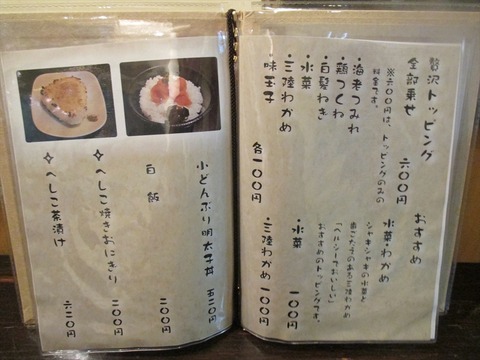 贅沢トッピング
全部乗せ 六〇〇円
※六〇〇円は、トッピングのみの
料金です。
・海老つみれ
・鶏つくね
・白髪ねぎ
・水菜
・三陸わかめ
・味玉子 各一〇〇円
おすすめ
水菜・わかめ
シャキシャキの水菜と
歯ごたえのある三陸わかめ
「ヘルシーでおいしい」
おすすめのトッピングです。
・水菜 一〇〇円
・三陸わかめ 一〇〇円
小どんぶり明太子丼 五二〇円
白飯 二〇〇円
✧へしこ焼きおにぎり 二〇〇円
✧へしこ茶漬け 六二〇円